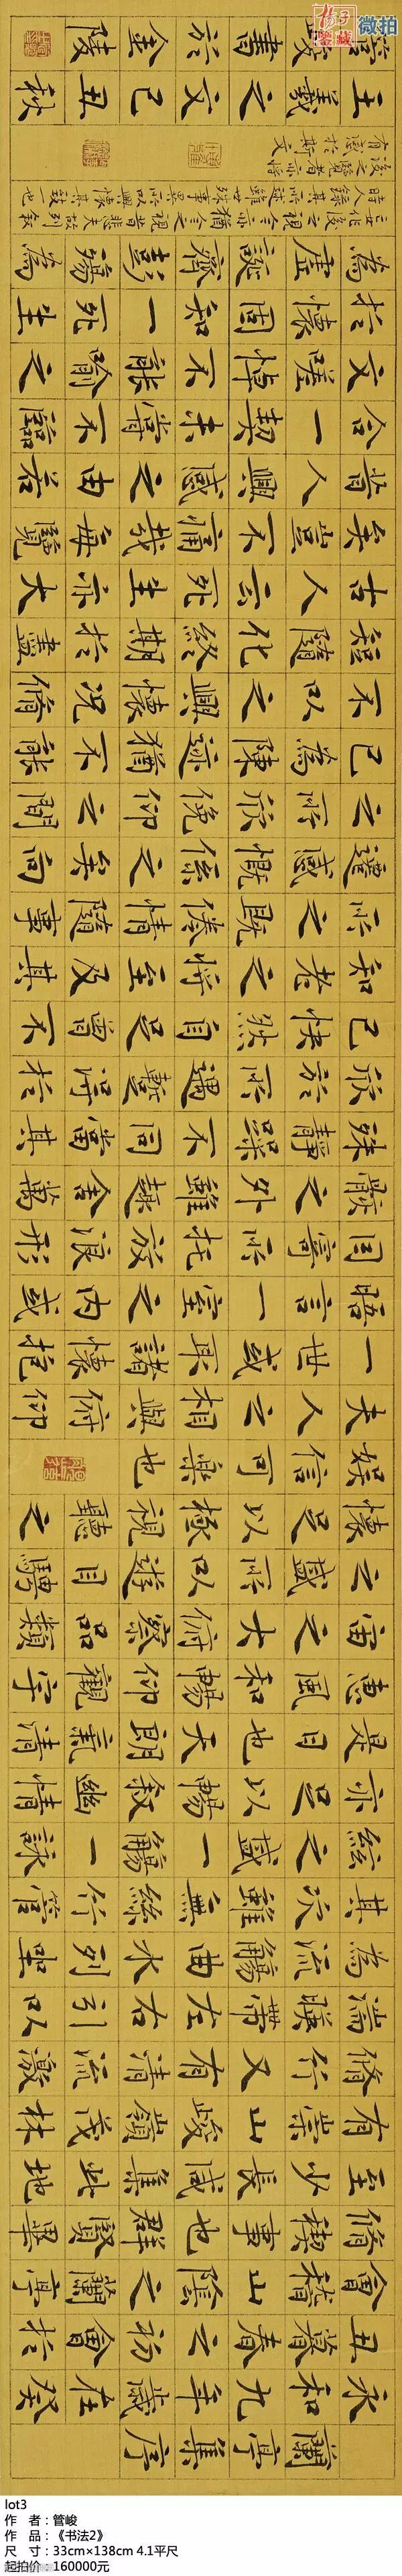 蘭亭集序
永和九年歲在癸
丑暮春之初會於
會稽山陰之蘭亭
脩禊事也群賢畢
至少長咸集此地
有崇山峻領茂林
脩竹又有清流激
湍暎帶左右引以
為流觴曲水列坐
其次雖無絲竹管
絃之盛一觴一詠
亦足以暢敘幽情
是日也天朗氣清
惠風和暢仰觀宇
宙之大俯察品類
之盛所以遊目騁
懷足以極視聽之
娛信可樂也
夫人之相與俯仰
一世或取諸懷抱
晤言一室之內或
因寄所托放浪形
骸之外雖趣舍萬
殊靜躁不同當其
欣於所遇暫得於
己快然自足曾不
知老之將至及其
所之既倦情隨事
遷感慨係之矣向
之所欣俛仰之間
已為陳迹猶不能
不以之興懷況脩
短隨化終期於盡
古人云死生亦大
矣豈不痛哉每覽
昔人興感之由若
合一契未嘗不臨
文嗟悼不能喻之
於懷固知一死生
為虛誕齊彭殤為
作後之視今亦猶今之視昔悲夫故列敘
時人錄其所述雖世殊事異所以興懷其致一也
後之覽者亦將
有感於斯文
王羲之文己丑秋
管峻書於金陵
鑒藏 微拍
lot3
作 者：管峻
作 品：《书法2》
尺 寸：33cm×138cm 4.1平尺
起拍价：160000元